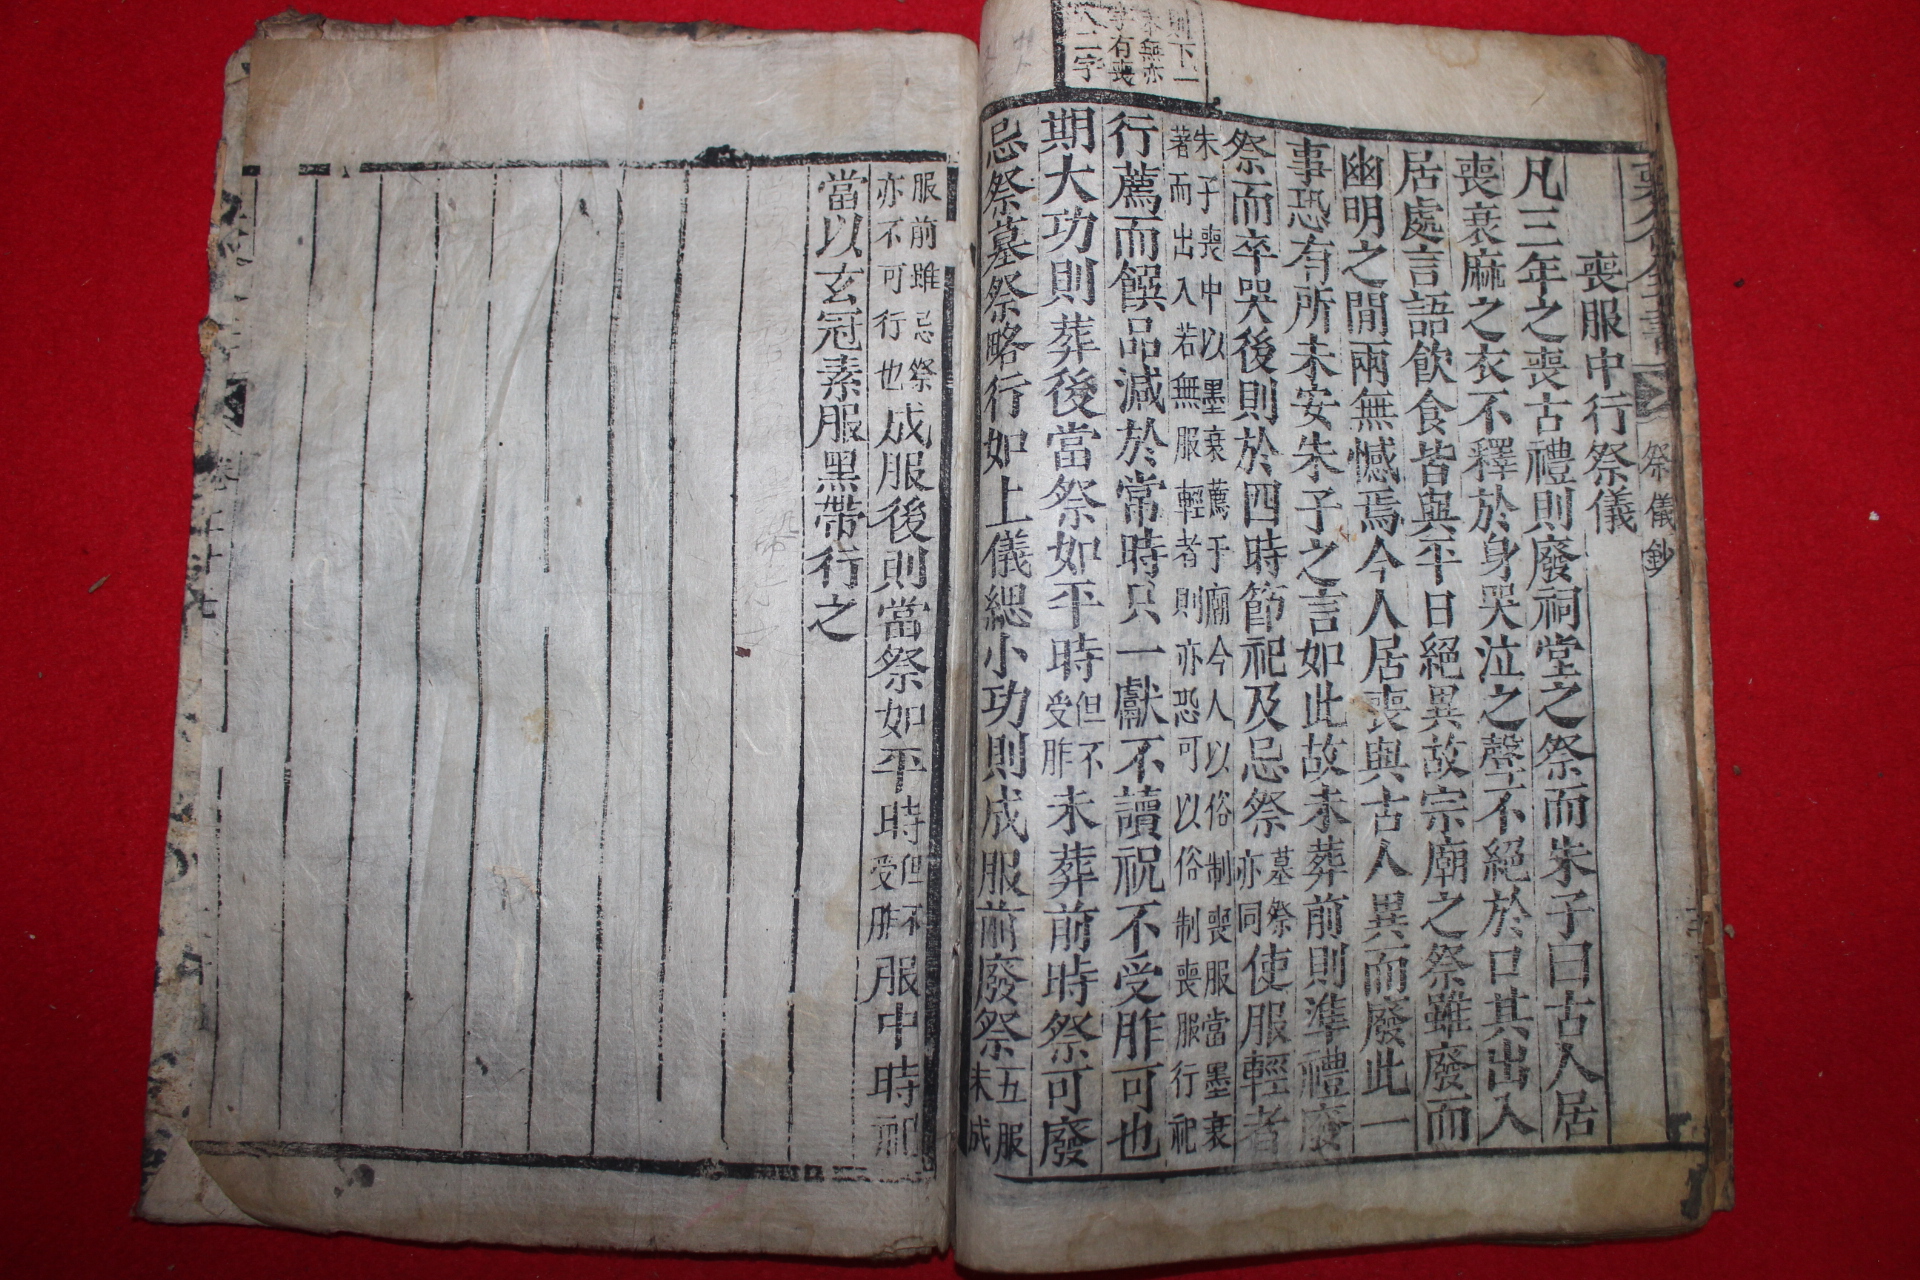 祭儀鈔
喪服中行祭儀
凡三年之喪古禮則廢祠堂之祭而朱子曰古人居
喪衰麻之衣不釋於身哭泣之聲不絕於口其出入
居處言語飮食皆與平日絕異故宗廟之祭雖廢而
幽明之間兩無憾焉今人居喪與古人異而廢此一
事恐有所未安朱子之言如此故未葬前則準禮廢
祭而卒哭後則於四時節祀及忌祭墓祭亦同使服輕者
朱子喪中以墨衰薦于廟今人以俗制喪服當墨衰
著而出入若無服輕者則亦恐可以俗制喪服行祀
行薦而饌品減於常時只一獻不讀祝不受胙可也
期大功則葬後當祭如平時但不受胙未葬前時祭可廢
忌祭墓祭略行如上儀緦小功則成服前廢祭五服未成
則下一
本無亦
字有喪
人二字
服前雖忌祭亦不可行也成服後則當祭如平時但不受胙服中時祀
當以玄冠素服黑帶行之
卷二十七